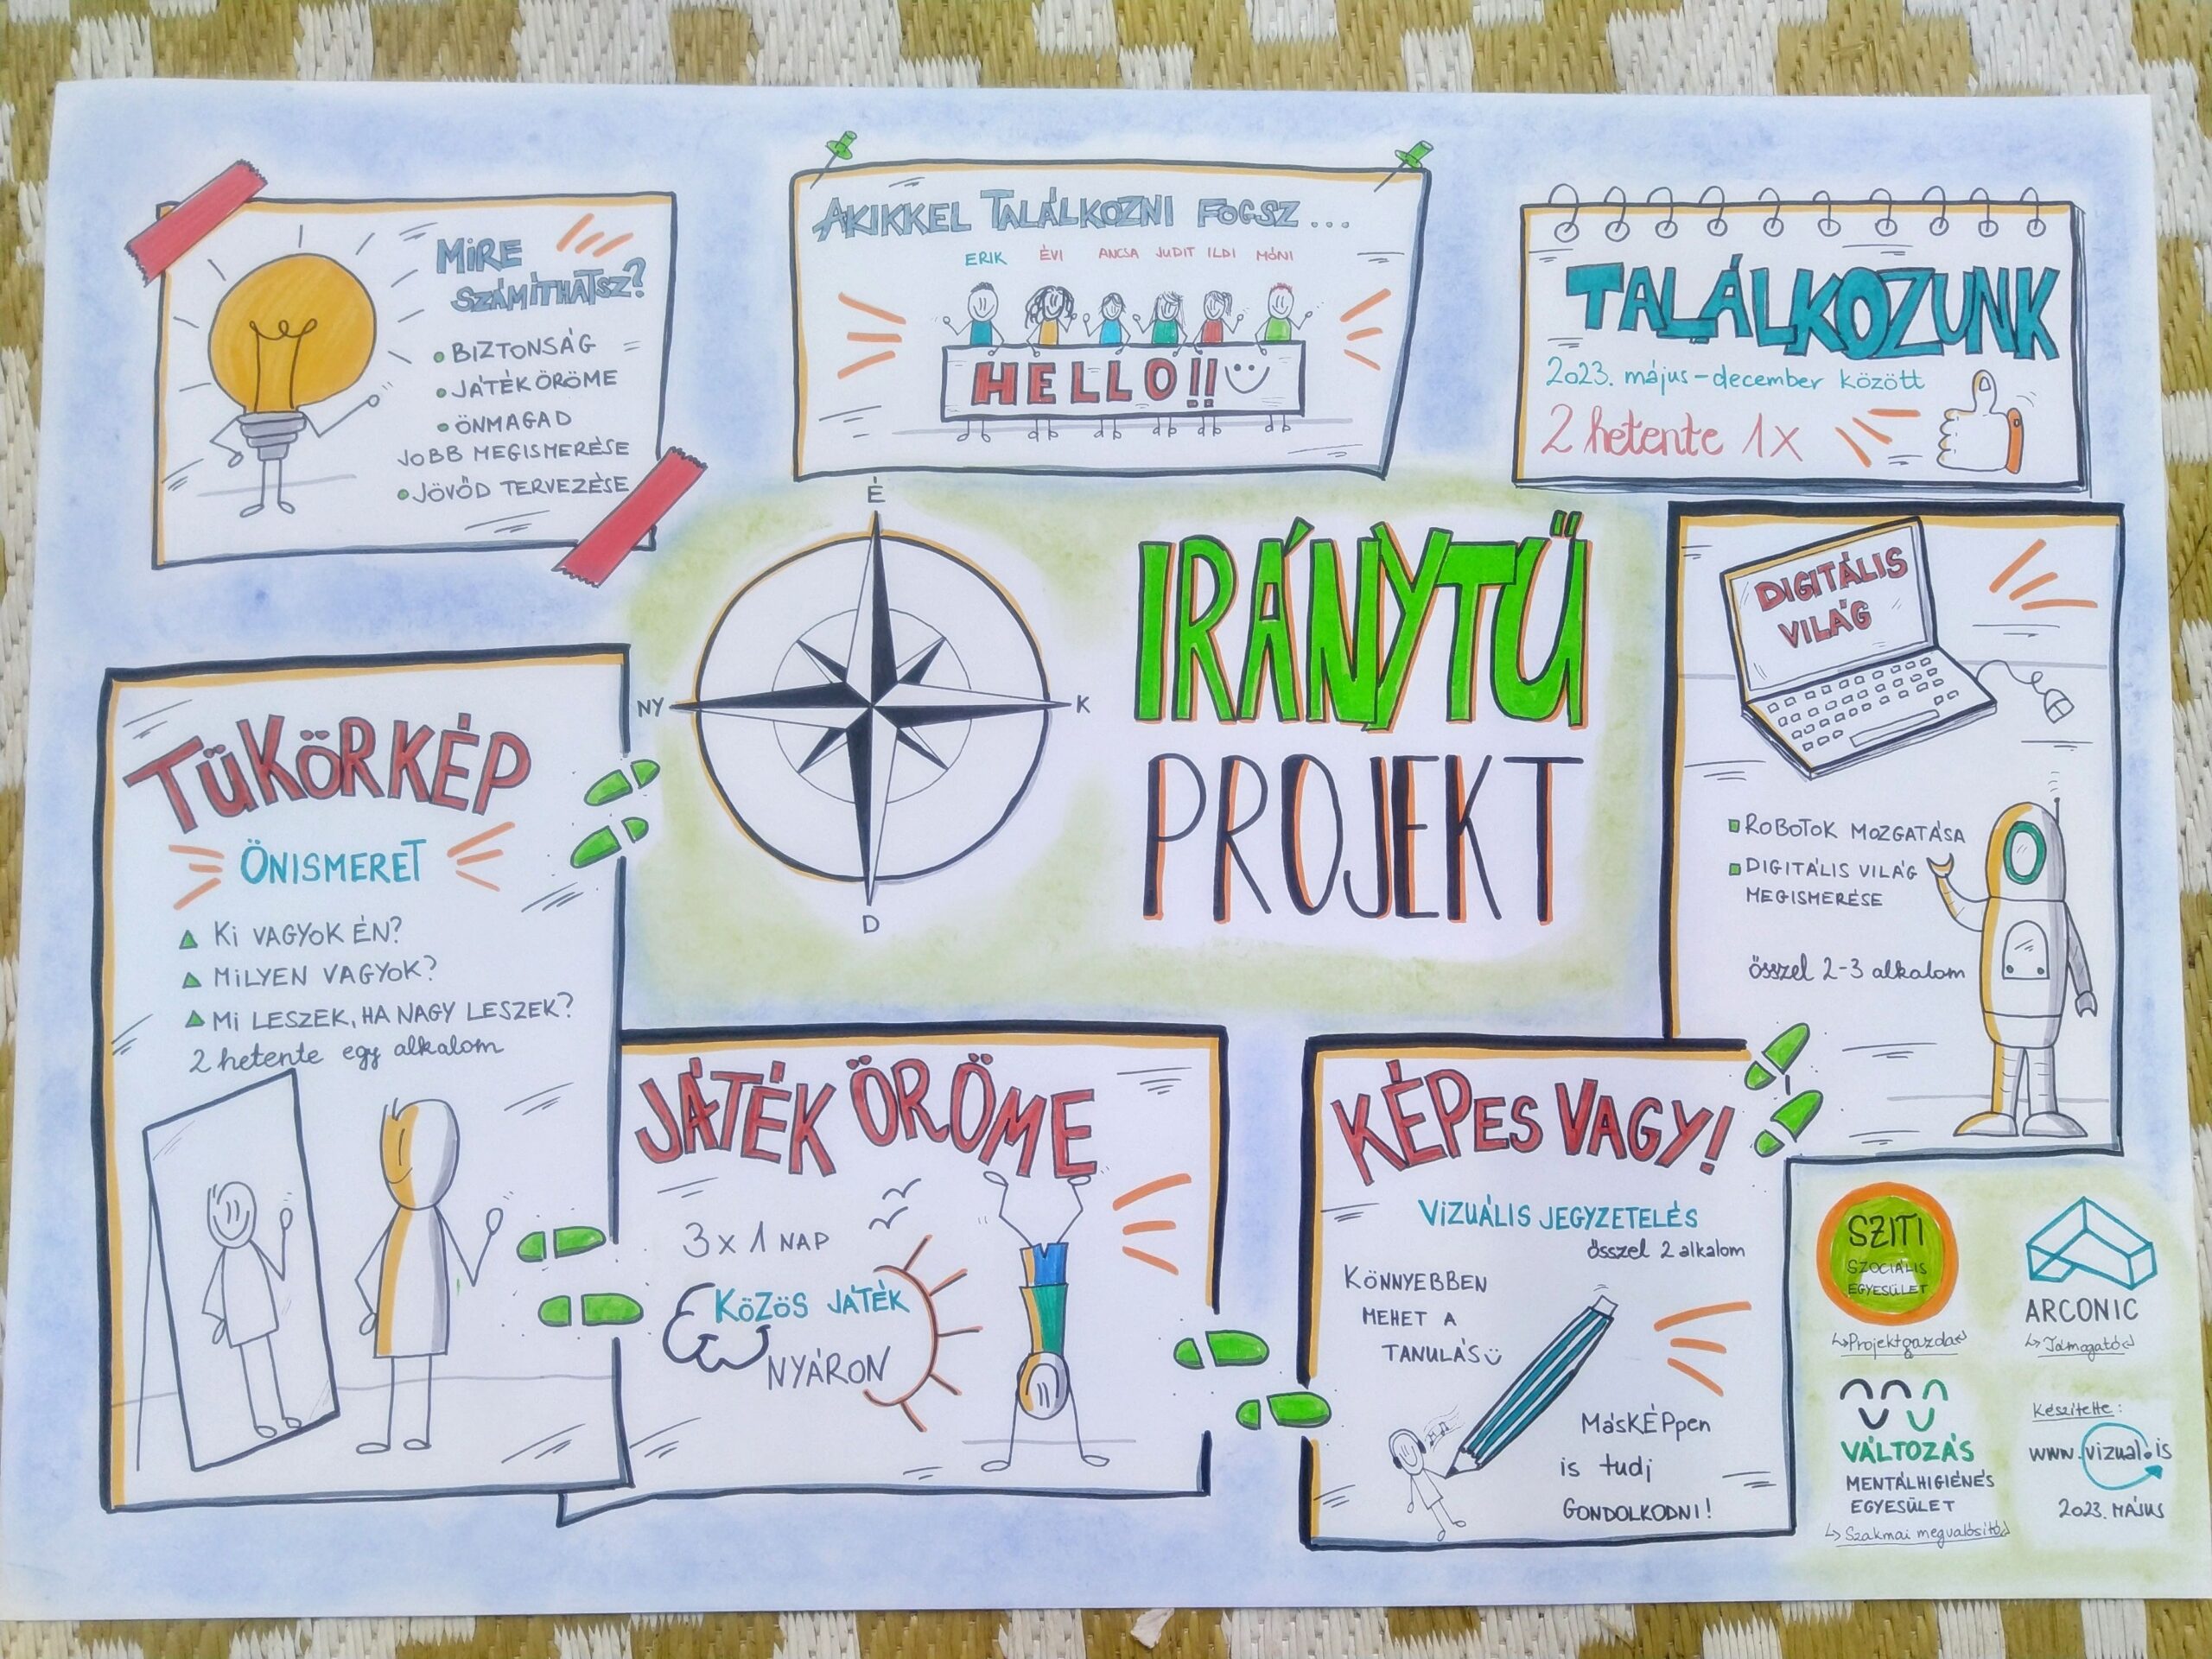 MIRE
SZÁMÍTHATSZ?
BIZTONSÁG
JÁTÉK ÖRÖME
ÖNMAGAD
JOBB MEGISMERÉSE
JÖVŐD TERVEZÉSE
AKIKKEL TALÁLKOZNI FOGSZ...
ERIK ÉVI ANCSA JUDIT ILDI MÓNI
HELLO!!
TALÁLKOZUNK
2023. május-december között
2 hetente 1x
É
NY
K
D
IRÁNYTŰ
PROJEKT
DIGITÁLIS
VILÁG
ROBOTOK MOZGATÁSA
DIGITÁLIS VILÁG
MEGISMERÉSE
ősszel 2-3 alkalom
TÜKÖRKÉP
ÖNISMERET
KI VAGYOK ÉN?
MILYEN VAGYOK?
MI LESZEK, HA NAGY LESZEK?
2 hetente egy alkalom
JÁTÉK ÖRÖME
3 x 1 NAP
KÖZÖS JÁTÉK
NYÁRON
KÉPES VAGY!
VIZUÁLIS JEGYZETELÉS
ősszel 2 alkalom
KÖNNYEBBEN
MEHET A
TANULÁS
MásKÉPpen
is tudj
GONDOLKODNI!
SZITI
SZOCIÁLIS
EGYESÜLET
Projektgazda
ARCONIC
Támogató
VÁLTOZÁS
MENTÁLHIGIÉNÉS
EGYESÜLET
Szakmai megvalósító
Készítette:
www.vizual.is
2023. MÁJUS